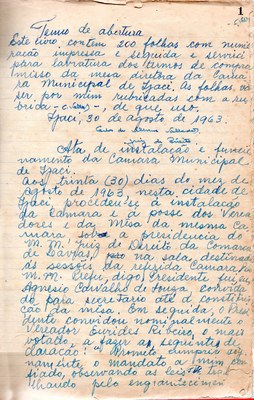 1
Termo de abertura
Este livro, contem 200 folhas com nume
ração impressa e seguida e servirá
para lavratura dos termos de compro
misso da mesa diretora da Cama
ra Municipal de Igaci. As folhas, vão
ser por mim rubricadas com a ru
brida - de que uso.
Igaci, 30 de agosto de 1963.
Juiz de Direito
Ata de instalação e funcio
namento da Camara Municipal
de Igaci.
Aos trinta (30) dias do mez de
agosto de 1963, nesta cidade de
Igaci, procedeu-se à instalação
da Câmara e à posse dos Verea
dores e da Mesa da mesma Ca
mara sob a presidencia do
M.M. Juiz de Direito da Comarca
de na sala, destinada
às sessões da referida Camara. O
M.M. digo, Presidente
Agnesio Carvalho de Souza, convida
do para secretario até à constitui
ção da mesa. Em seguida, o Presi
dente convidou nominalmente o
Vereador Eurides Ribeiro, o mais
votado, a fazer a seguinte de
claração: "Prometo
o mandato a mim con
fiado, observando as leis
lhando pelo engrandecimen